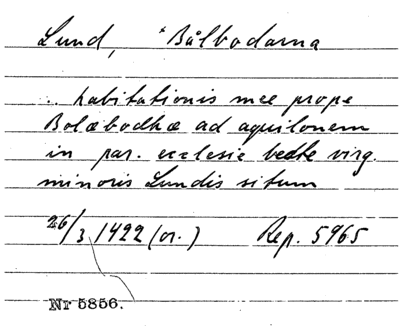 Lund, *Bålbodarna
.. habitationis mee prope
Bolæbodhæ ad aquilonem
in par. ecclesie beate virg.
minoris Lundis situm
26/3 1422 (or.) Rep. 5965
Nr 5856.